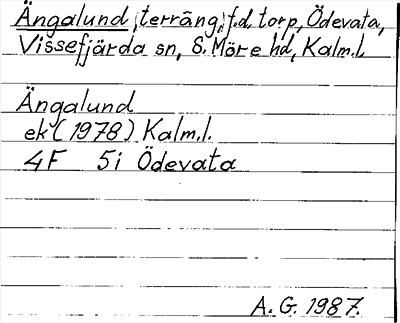 Ängalund, terräng, f.d. torp, Ödevata,
Vissefjärda sn, S. Möre hd, Kalm.l.
Ängalund
ek (1978) Kalm.l.
4F 5i Ödevata
A.G. 1987.